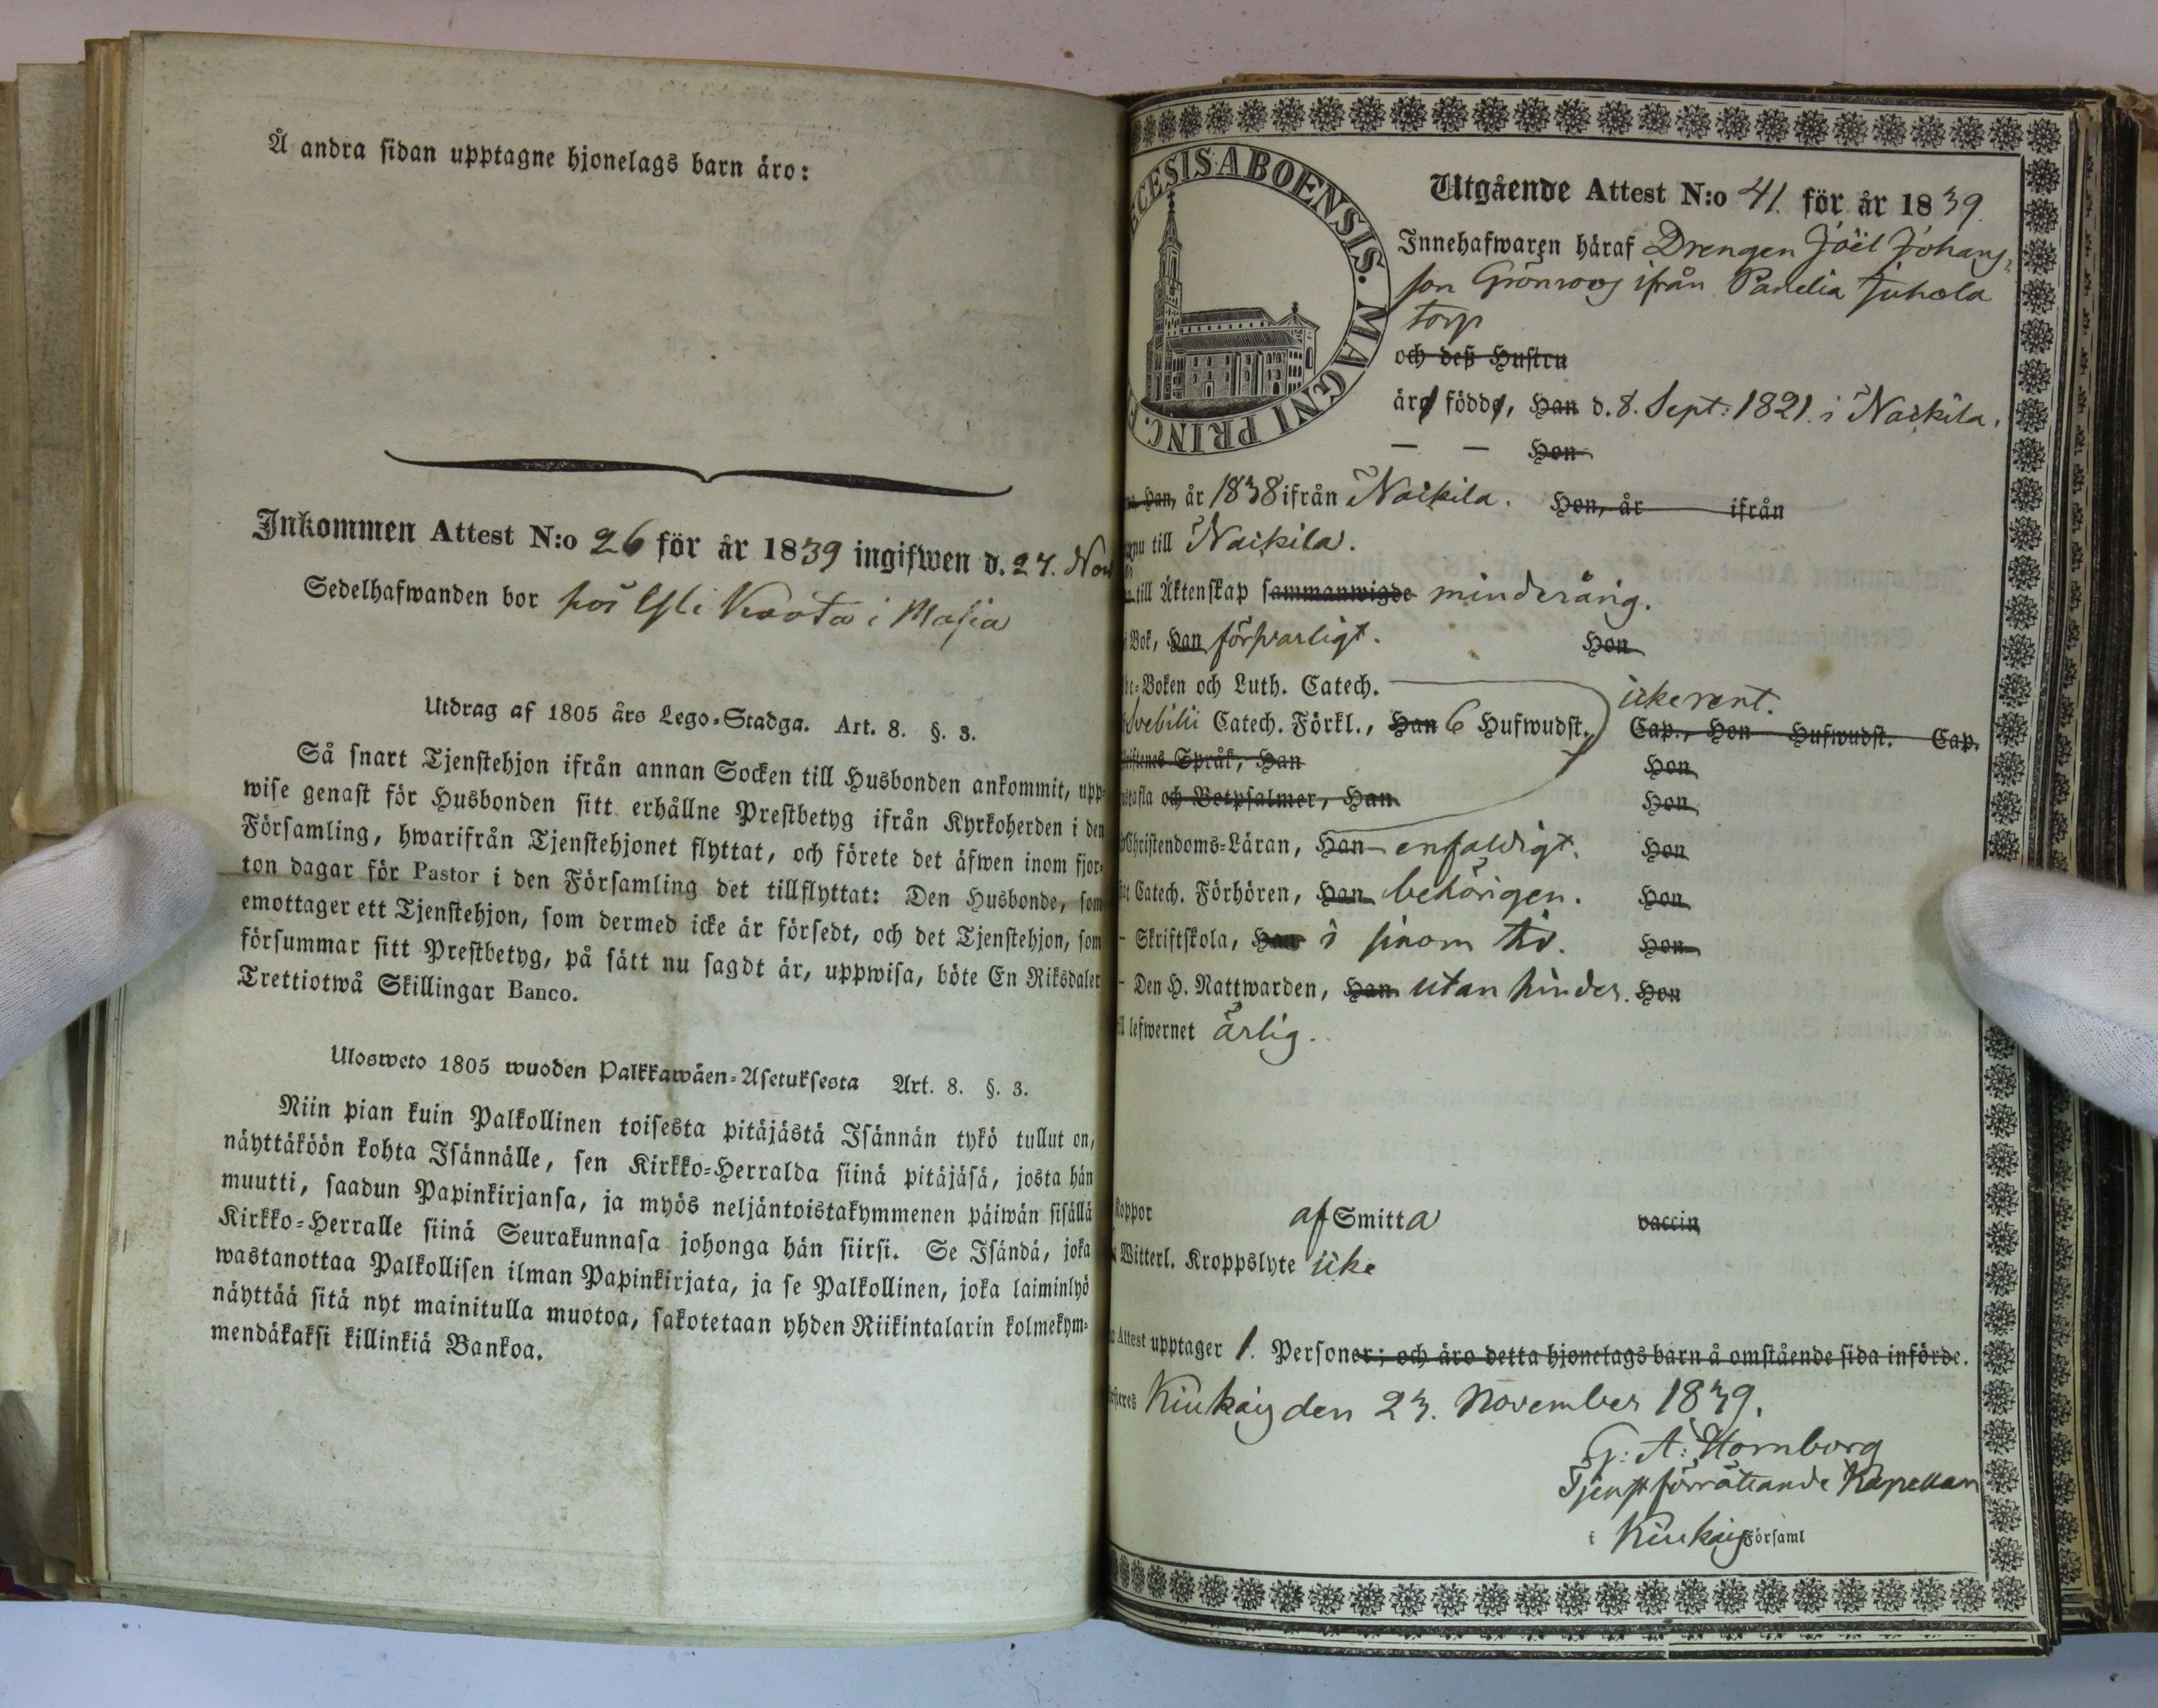 Å andra sidan upptagne hjonelags barn äro:
Inkommen Attest N:o 26 för år 1839 ingifwen d. 27. Nov
Sedelhafwanden bor hos i Masia
Utdrag af 1805 års Lego-Stadga. Art. 8. §. 3.
Så snart Tjenstehjon ifrån annan Socken till Husbonden ankommit, upp-
wise genast för Husbonden sitt erhållne Prestbetyg ifrån Kyrkoherden i den
Församling, hwarifrån Tjenstehjonet flyttat, och förete det äfwen inom fjor-
ton dagar för Pastor i den Församling det tillflyttat: Den Husbonde, som
emottager ett Tjenstehjon, som dermed icke är försedt, och det Tjenstehjon, som
försummar sitt Prestbetyg, på sätt nu sagdt är, uppwisa, böte En Riksdaler
Trettiotwå Skillingar Banco.
Ulosweto 1805 wuoden Palkkawäen-Asetuksesta Art. 8. §. 3.
Niin pian kuin Palkollinen toisesta pitäjästä Isännän tykö tullut on,
näyttäköön kohta Isännälle, sen Kirkko-Herralda siinä pitäjäsä, josta hän
muutti, saadun Papinkirjansa, ja myös neljäntoistakymmenen päiwän sisällä
Kirkko-Herralle siinä Seurakunnasa johonga hän siirsi. Se Isändä, joka
wastanottaa Palkollisen ilman Papinkirjata, ja se Palkollinen, joka laiminlyö
näyttää sitä nyt mainitulla muotoa, sakotetaan yhden Riikintalarin kolmekym-
mendäkaksi killinkiä Bankoa.
CESIS ABOENSIS. MAGNI PRINC. F
Utgående Attest N:o 41. för år 1839.
Innehafwaren häraf Drengen Joël Johans-
son Grönroos ifrån Panelia Juhola
torp
och deß Hustru
äro födde, Han d. 8. Sept: 1821. i Nackila.
— — Hon
Han, år 1838 ifrån Nackila. Hon, år ifrån
nu till Nackila.
till Äktenskap sammanwigde minderårig.
i Bok, Han försvarligt. Hon
Boken och Luth. Catech.
Svebilii Catech. Förkl., Han 6 Hufwudst. icke rent. Cap., Hon Hufwudst. Cap.
Språk, Han Hon
tafla och Botpsalmer, Han Hon
Christendoms-Läran, Han enfaldigt. Hon
Catech. Förhören, Han behörigen. Hon
- Skriftskola, Han i sinom tid. Hon
- Den H. Nattwarden, Han utan hinder. Hon
lefwernet ärlig.
Koppor af Smitta vaccin
Witterl. Kroppslyte icke
Attest upptager 1. Personer; och äro detta hjonelags barn å omstående sida införde.
Kiukais den 23. November 1839.
G. A: Hornborg
Tjenstförrättande Kapellan
i Kiukais Församl